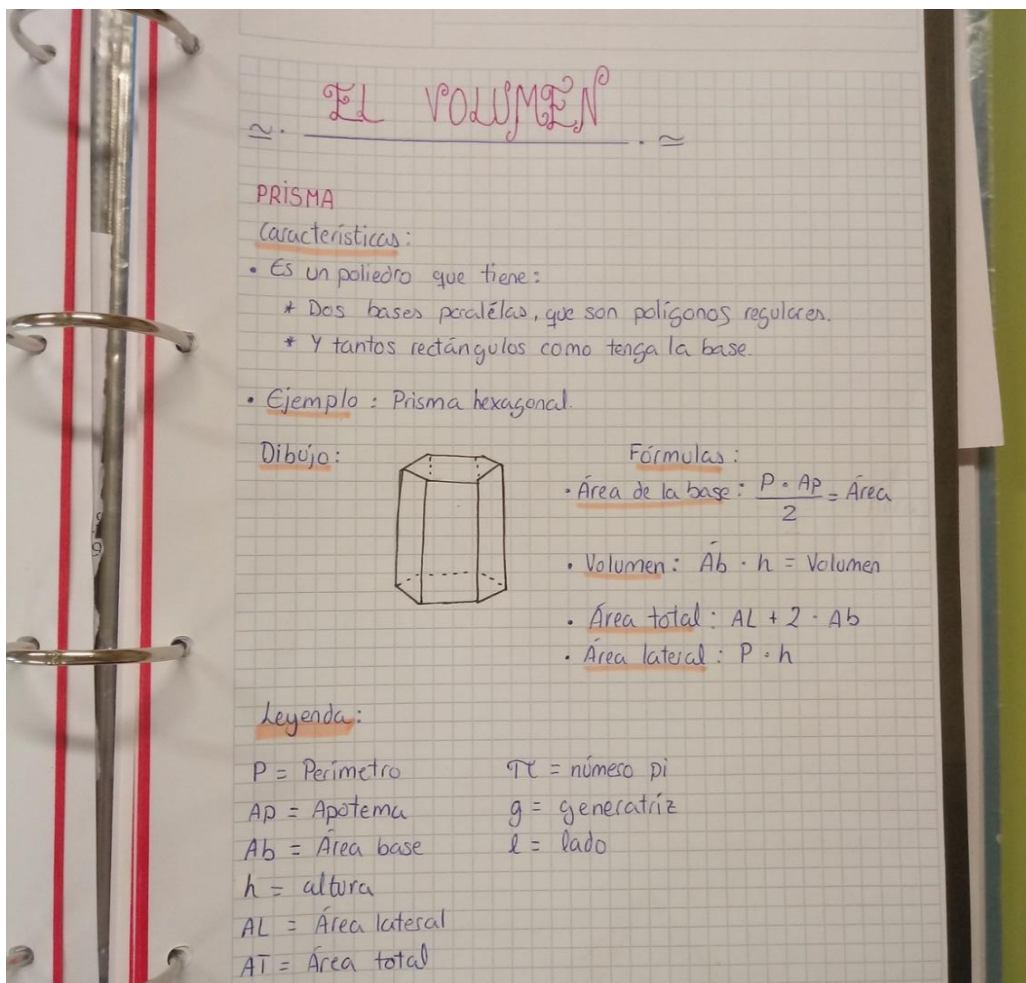 EL VOLUMEN
PRISMA
Características:
• Es un poliedro que tiene:
* Dos bases paralélas, que son polígonos regulares.
* Y tantos rectángulos como tenga la base.
• Ejemplo: Prisma hexagonal.
Dibujo:
Fórmulas:
• Área de la base: P · Ap / 2 = Área
• Volumen: Ab · h = Volumen
• Área total: AL + 2 · Ab
• Área lateral: P · h
Leyenda:
P = Perímetro
Ap = Apotema
Ab = Área base
h = altura
AL = Área lateral
AT = Área total
π = número pi
g = generatríz
l = lado